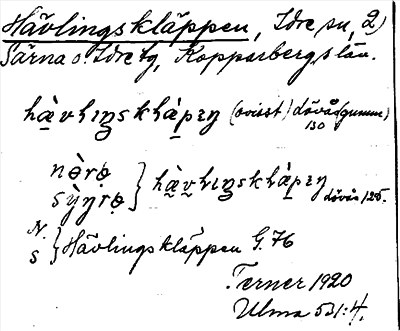 Hävlingskläppen, Idre sn, 2)
Särna o Idre tg, Kopparbergs län.
hæ̀vlɩŋsklæ̀pɛŋ (ovisst) dövås (gumm)
130
nø̀rø̣
sỳŋrø̣ } hæ̀vlɩŋsklæ̀pɛŋ dövås 125.
N.
S } Hävlingskläppen G. 76
Terner 1920
Ulma 531:4.